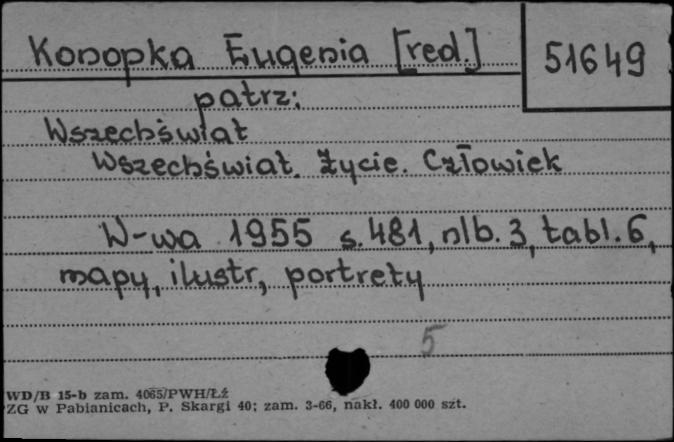 Konopka Eugenia [red.]
51649
patrz:
Wszechświat
Wszechświat. Życie. Człowiek
W-wa 1955 s. 481, nlb. 3, tabl. 6,
mapy, ilustr, portrety
5
WD/B 15-b zam. 4065/PWH/Łź
ZG w Pabianicach, P. Skargi 40; zam. 3-66, nakł. 400 000 szt.